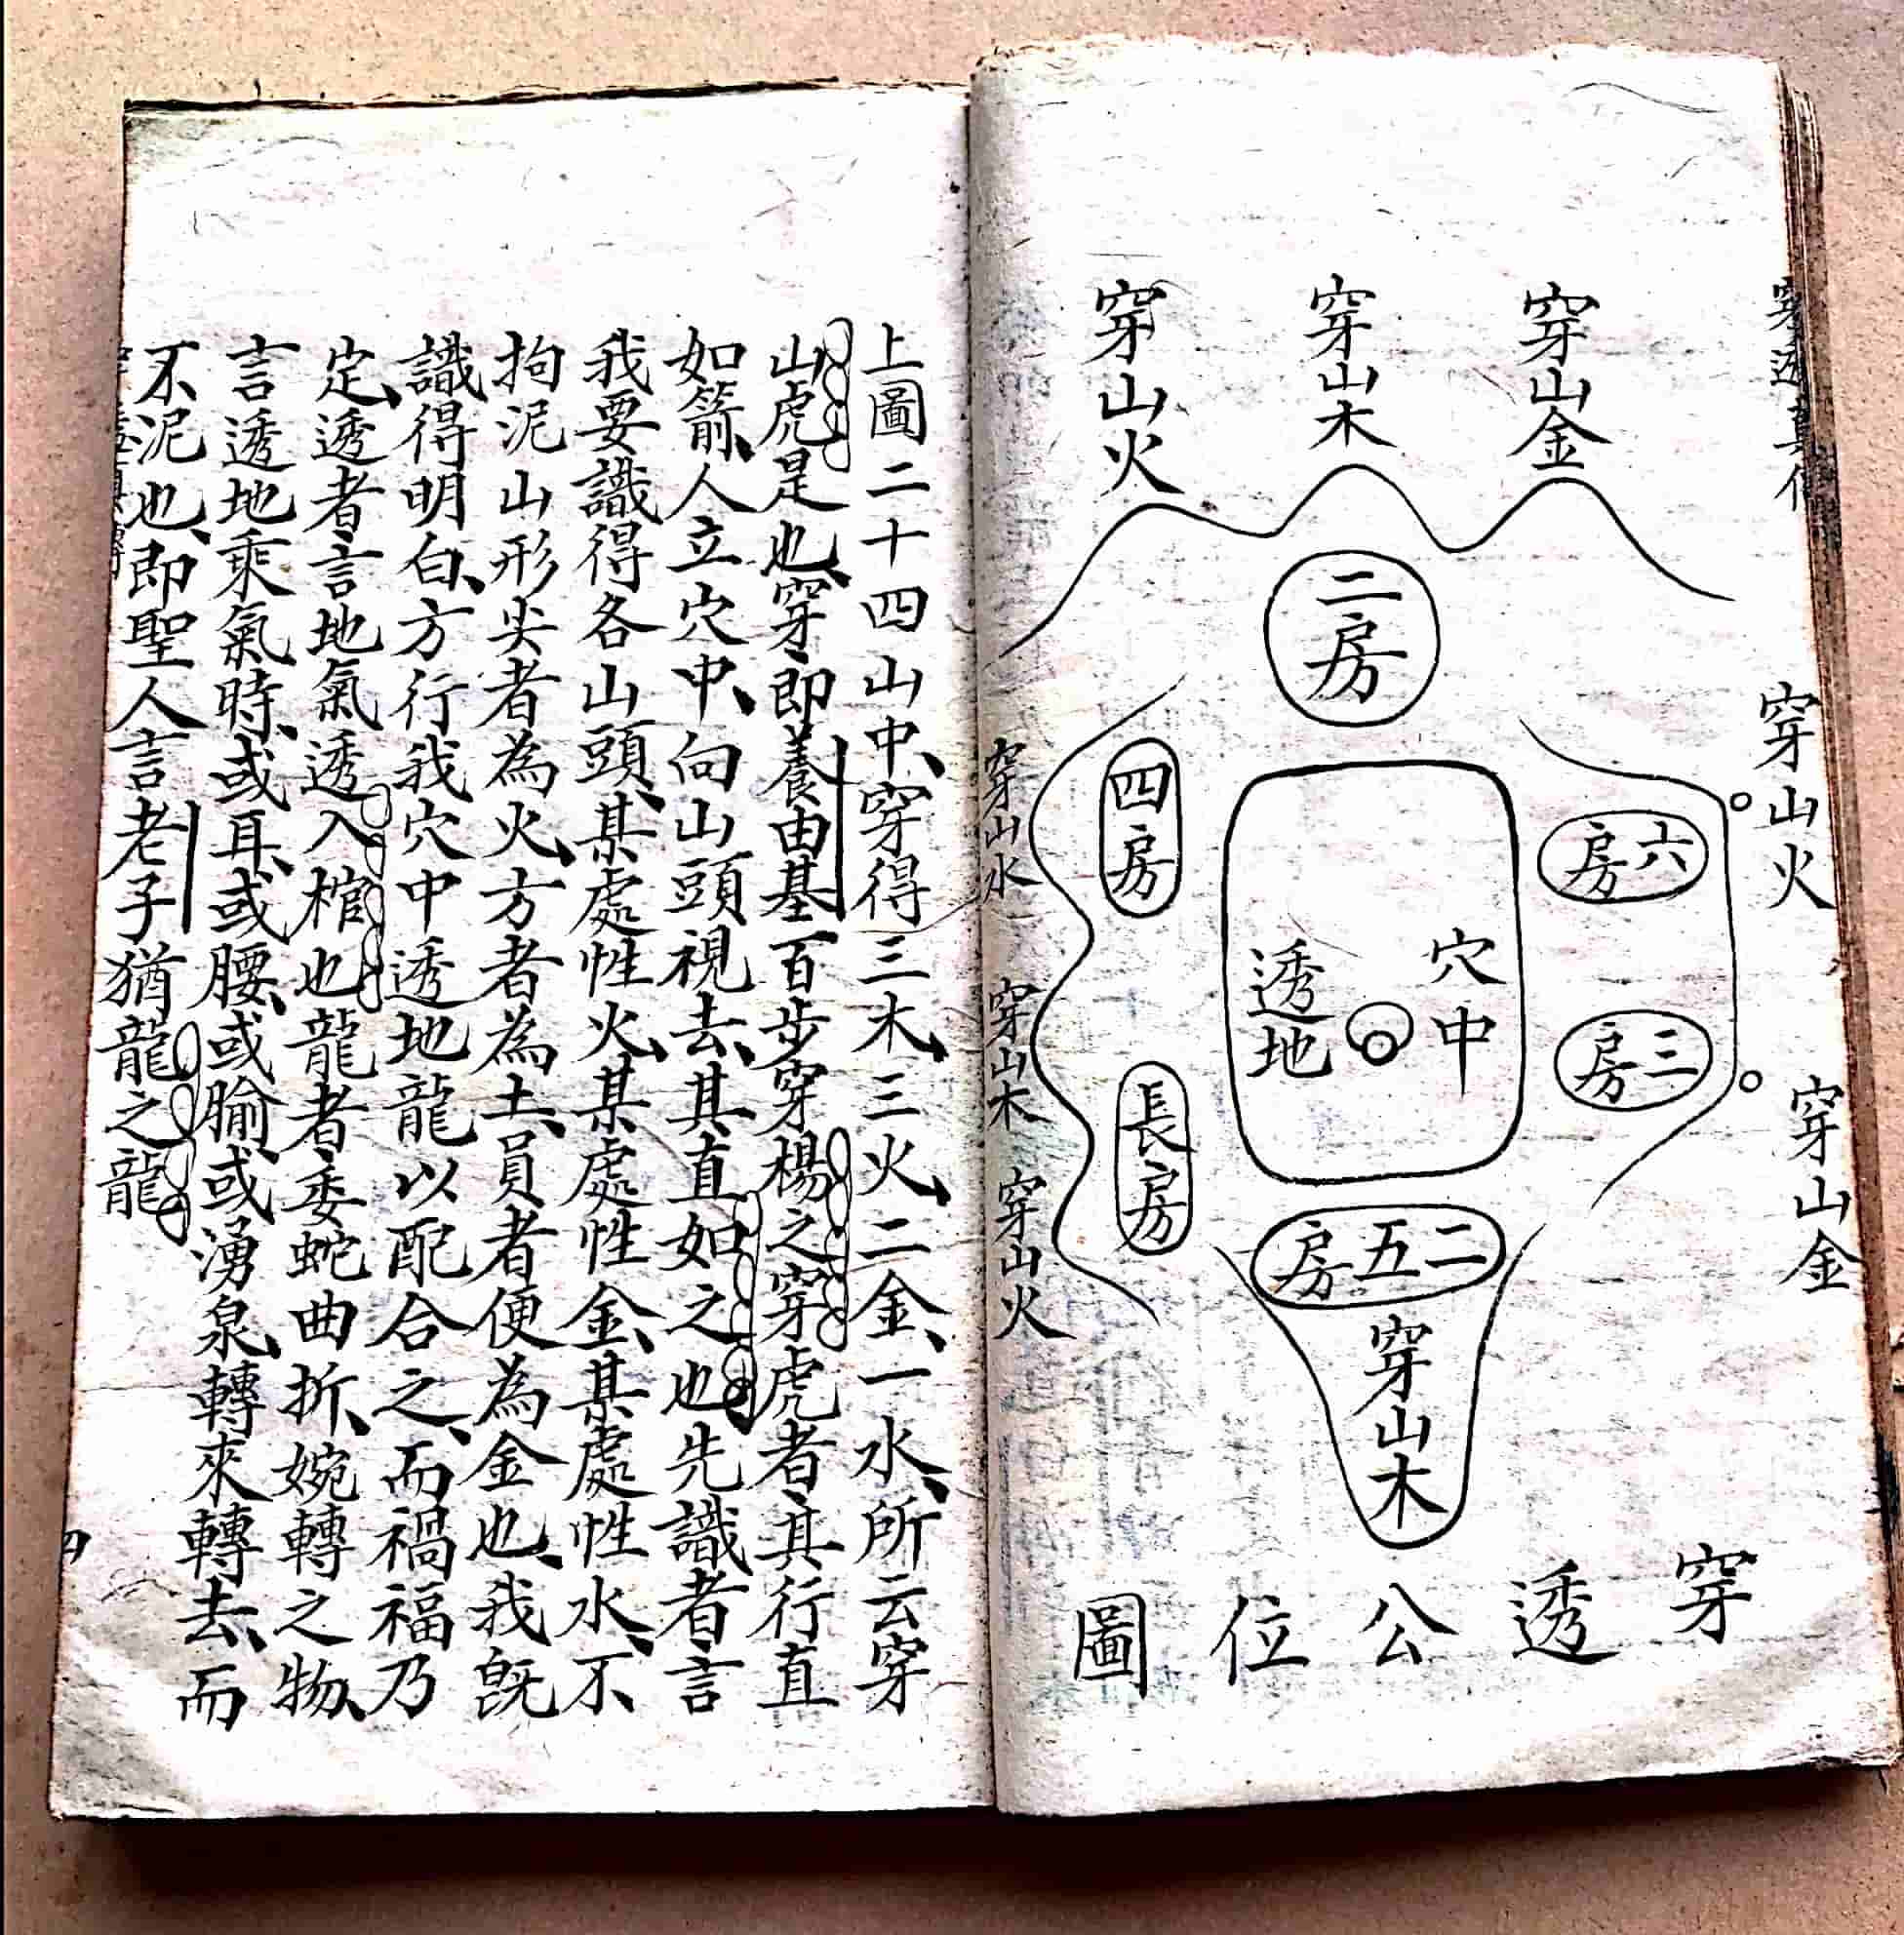 穿山金
穿山木
穿山火
二房
穿山火
六房
三房
穿山金
穴中
透地
四房
長房
穿山水
穿山木
穿山火
二五房
穿山木
穿透公位圖
上圖二十四山中、穿得三木、三火、二金、一水、所云穿
山虎是也、穿即養由基百步穿楊之穿虎者其行直
如箭、人立穴中、向山頭視去、其直如之也先識者言
我要識得各山頭、某處性火、某處性金、某處性水、不
拘泥山形尖者為火、方者為土、員者便為金也、我既
識得明白、方行我穴中透地龍以配合之、而禍福乃
定、透者言地氣透入棺也龍者委蛇曲折、婉轉之物、
言透地乘氣時、或耳、或腰、或腧、或湧泉、轉來轉去、而
不泥也、即聖人言老子猶龍之龍
四